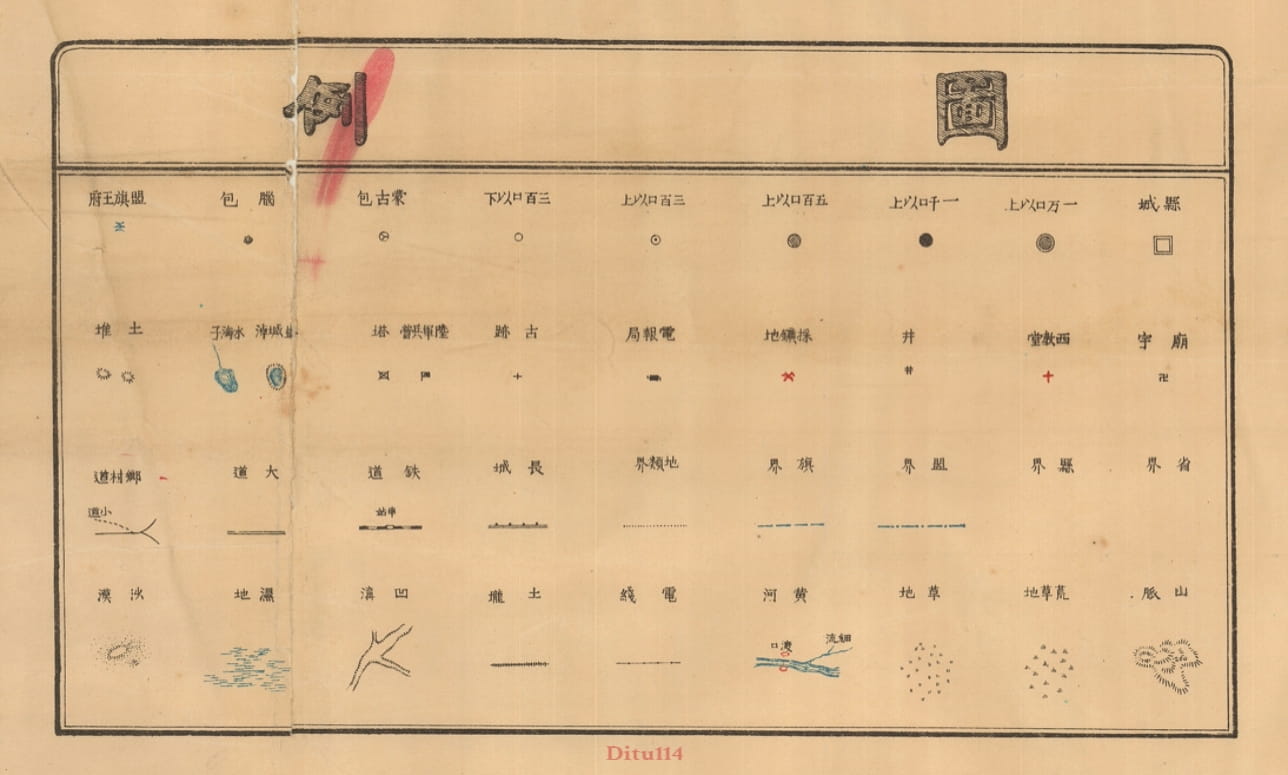 圖例
縣城
一万口以上
一千口以上
五百口以上
三百口以上
三百口以下
蒙古包
腦包
盟旗王府
廟宇
西教堂
井
採鑛地
電報局
古跡
陸軍兵營
塔
水海子
土堆
省界
縣界
盟界
旗界
地類界
長城
鉄道
車站
大道
鄉村道
小道
山脈
荒草地
草地
黄河
細流
渡口
電綫
土壠
凹
濕地
沙漠
Ditu114